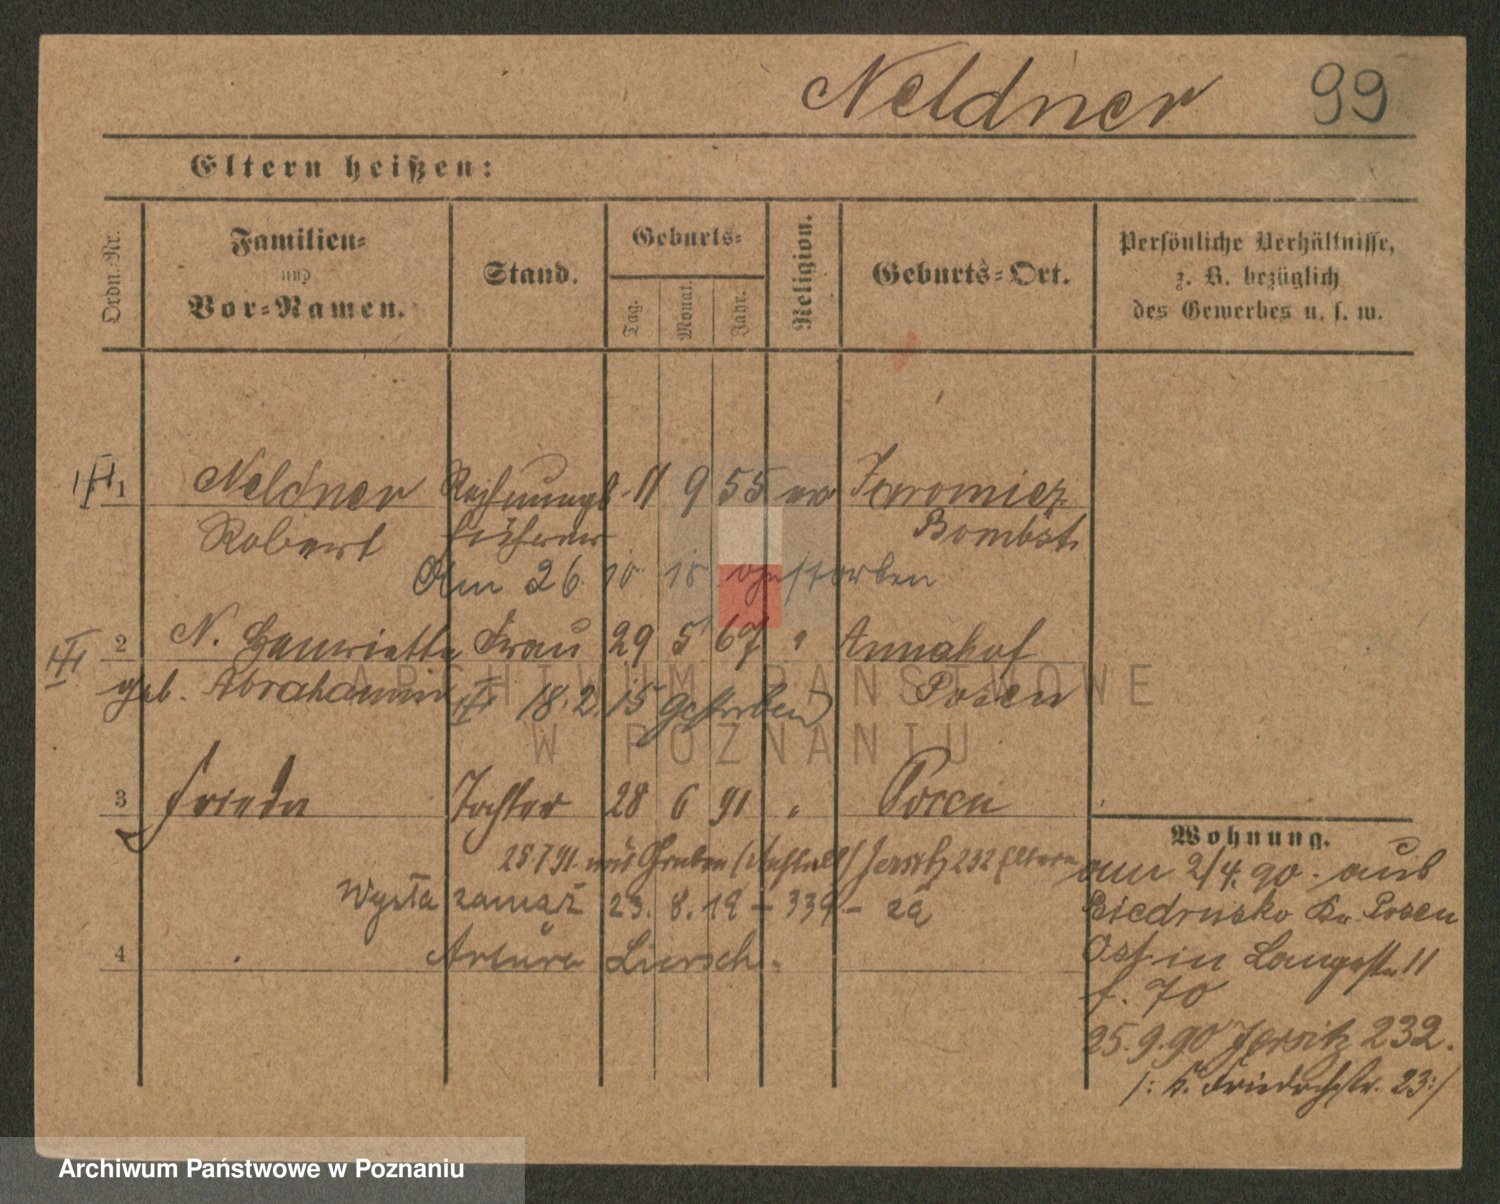 Neldner 99
Eltern heißen:
Ordn. Nr.
Familien-
und
Vor-Namen.
Stand.
Geburts-
Tag.
Monat.
Jahr.
Religion.
Geburts-Ort.
Persönliche Verhältnisse,
z. B. bezüglich
des Gewerbes u. s. w.
1 Neldner Rechnungs- 11 9 55 ev Jaromierz
Robert führer Bomst.
Am 26 10 18 gestorben
2 N. Henriette Frau 29 5 67 " Annahof
geb. Abrahamin Posen
18.2.15 gestorben
3 Frieda Tochter 28 6 91 " Posen
28.7.91 aus Jersitz 232 Eltern
Wyszła zamąż 23. 8. 19 – 339 – za
4 Artura Liersch.
Wohnung.
am 2/4. 90. aus
Biedrusko Kr. Posen
Ost in Langestr. 11
f. 70
25.9.90 Jersitz 232.
/: K. Friedrichstr. 23:/
ARCHIWUM PAŃSTWOWE
W POZNANIU
Archiwum Państwowe w Poznaniu